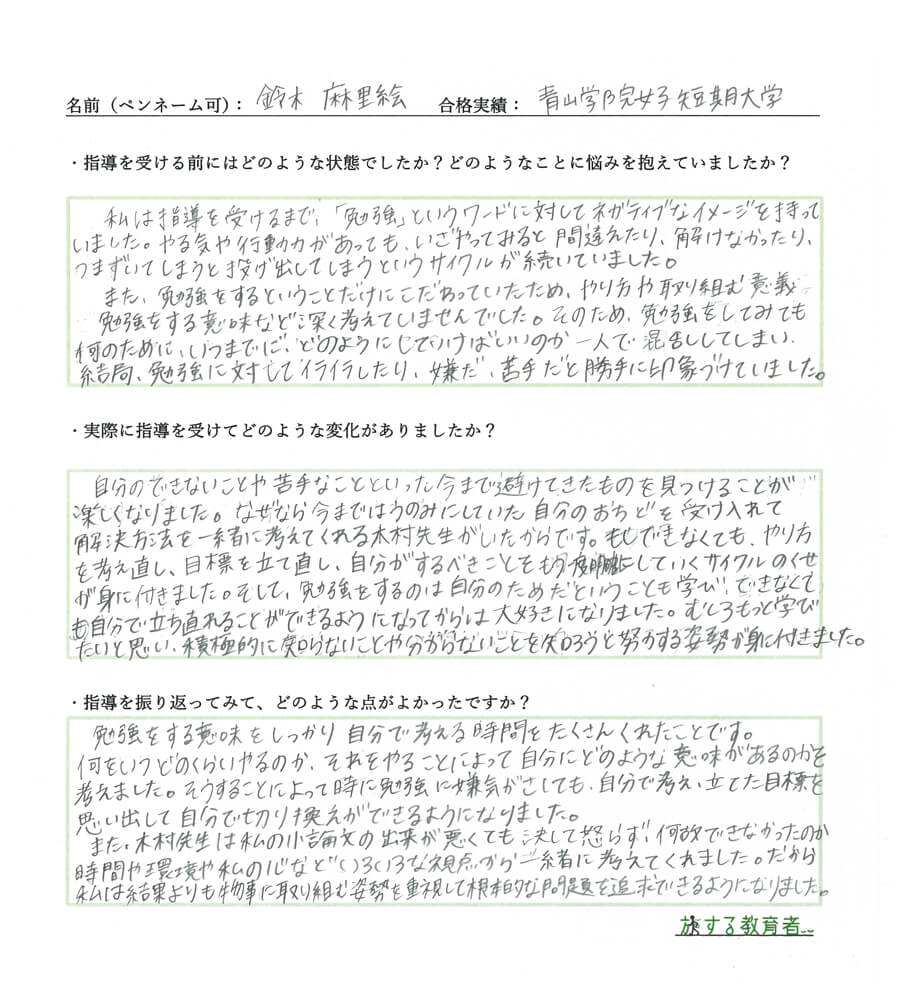 名前（ペンネーム可）： 鈴木 麻里絵 合格実績： 青山学院女子短期大学
・指導を受ける前にはどのような状態でしたか？どのようなことに悩みを抱えていましたか？
私は指導を受けるまで、「勉強」というワードに対してネガティブなイメージを持って
いました。やる気や行動力があっても、いざやってみると間違えたり、解けなかったり、
つまずいてしまうと投げ出してしまうというサイクルが続いていました。
また、勉強をするということだけにこだわっていたため、やり方や取り組む意義
勉強をする意味など深く考えていませんでした。そのため、勉強をしてみても
何のために、いつまでに、どのようにしていけばいいのか一人で混乱してしまい、
結局、勉強に対してイライラしたり、嫌だ、苦手だと勝手に印象づけていました。
・実際に指導を受けてどのような変化がありましたか？
自分のできないことや苦手なことといった今まで避けてきたものを見つけることが
楽しくなりました。なぜなら今まではうのみにしていた自分のおちどを受け入れて
解決方法を一緒に考えてくれる木村先生がいたからです。もしできなくても、やり方
を考え直し、目標を立て直し、自分がするべきことをもう一度明確にしていくサイクルのくせ
が身に付きました。そして、勉強をするのは自分のためだということも学び、できなくて
も自分で立ち直れることができるようになってからは大好きになりました。むしろもっと学び
たいと思い、積極的に知らないことや分からないことを知ろうと努力する姿勢が身に付きました。
・指導を振り返ってみて、どのような点がよかったですか？
勉強をする意味をしっかり自分で考える時間をたくさんくれたことです。
何をいつどのくらいやるのか、それをやることによって自分にどのような意味があるのかを
考えました。そうすることによって時に勉強に嫌気がさしても、自分で考え、立てた目標を
思い出して自分で切り換えができるようになりました。
また、木村先生は私の小論文の出来が悪くても決して怒らず、何故できなかったのか
時間や環境や私の心などいろいろな視点から一緒に考えてくれました。だから
私は結果よりも物事に取り組む姿勢を重視して根本的な問題を追求できるようになりました。
旅する教育者